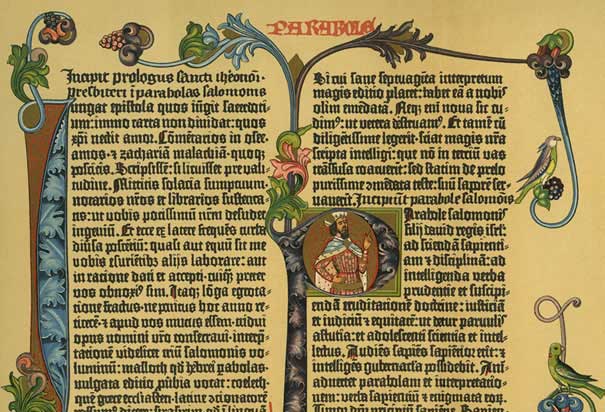 PARABOLE
Incipit prologus sancti iheronimi
presbiteri ī parabolas salomonis
Iungat epistola quos iūgit sacerdoti-
um: immo carta non dividat: quos
xp̄i nectit amor. Cōmētarios in osee.
amos. ⁊ zachariā malachiā. quoqꝫ
poscitis. Scripsissē: si licuisset pre vali-
tudine. Mittitis solacia sumptuum.
notarios nr̄os et librarios sustenta-
tis: ut vobis potissimū nr̄m desudet
ingeniū. Et ecce ex latere frequēs turba
diūsa poscētiū: quasi aut equū sit me
vobis esuriētibꝫ alijs laborare: aut
in ratione dati et accepti. cuiqꝫ preter
vos obnoxiꝰ sim. Itaqꝫ lōga egrota-
tione fractus. ne penitus hoc anno re-
ticerē. ⁊ apud vos mutus essem. tridui
opus nomini vr̄o consecravi. interp̄-
tationē videlicet triū salomonis vo-
luminū: masloth qd̄ hebrei ꝑabolas.
vulgata editio ꝓūbia vocat: coeleth.
que grece ecclesiasten. latine ꝯcionatorē
Si cui sane septuagīta interpretum
magis editio placet: habet eā a nobis
olim emēdatā. Neqꝫ eni nova sic cu-
dimꝰ: ut vetera destruamꝰ. Et tamē cū
diligētissime legerit. sciat magis nr̄a
scripta intelligi: que nō in terciū vas
trāsfusa coacuerit: sed statim de prelo
purissime ꝯmēdata teste: suū saporē ser-
vaverit. Incipiūt parabole salomōis
Parabole salomonis
filij david regis isrl̄:
ad sciēdā sapienti-
am ⁊ disciplinā: ad
intelligenda verba
prudentie et suscipi-
endā eruditationē doctrine: iusticiā
et iudiciū ⁊ equitatē: ut detur parvulis
astutia: et adolescēti scientia et intel-
lectus. Audiēs sapiēs sapiētior erit: ⁊
intelligēs gubernacla possidebit. Ani-
advertet parabolam et interpretatio-
nem: verba sapientiū ⁊ enigmata eoꝝ.